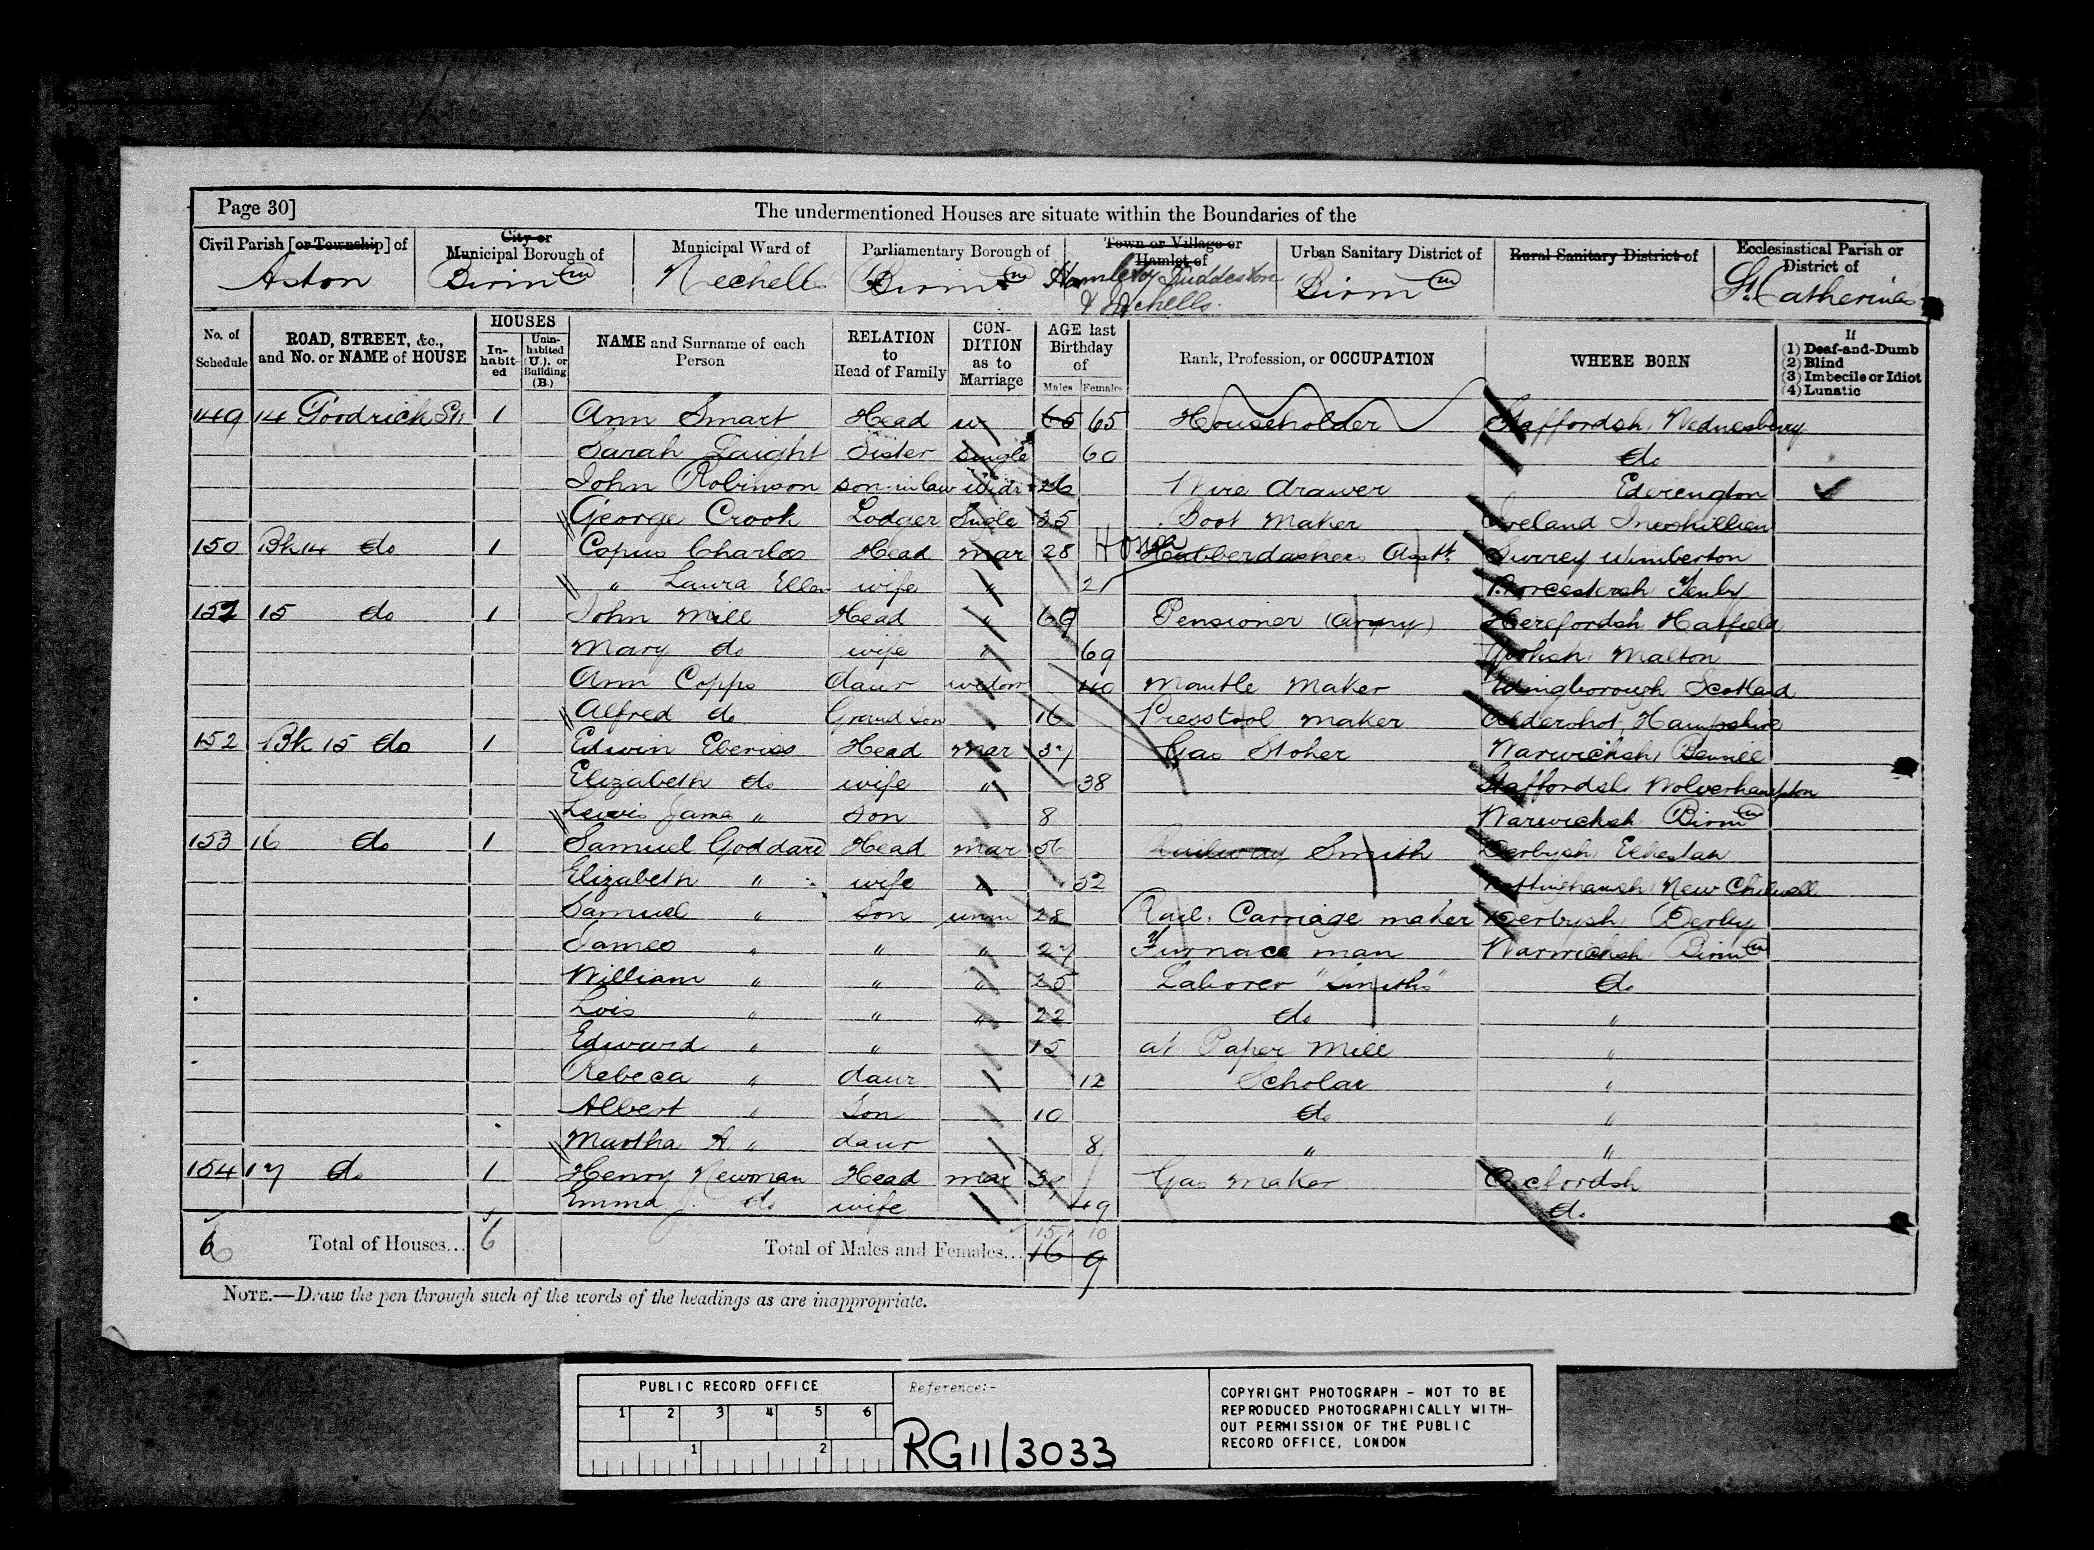 Page 30]
The undermentioned Houses are situate within the Boundaries of the
Civil Parish [or Township] of City or Municipal Borough of Municipal Ward of Parliamentary Borough of Town or Village or Hamlet of Urban Sanitary District of Rural Sanitary District of Ecclesiastical Parish or District of
Aston Birm m Nechells Birm m Hamlet of Duddeston & Nechells Birm m St Catherines
No. of Schedule ROAD, STREET, &c., and No. or NAME of HOUSE HOUSES In-habit-ed Unin-habited (U.), or Building (B.) NAME and Surname of each Person RELATION to Head of Family CON-DITION as to Marriage AGE last Birthday of Males Females Rank, Profession, or OCCUPATION WHERE BORN If (1) Deaf-and-Dumb (2) Blind (3) Imbecile or Idiot (4) Lunatic
149 14 Goodrick St 1 Ann Smart Head W 65 65 Householder Staffordsh Wednesbury
Sarah Laight Sister Single 60 do
John Robinson son-in-law 26 Wire drawer
George Crook Lodger Single 35 Boot Maker Ireland
150 Bk 14 do 1 Copus Charles Head mar 28 Habberdashers Asst Surrey
" Laura Ellen wife " 21 Worcestersh
151 15 do 1 John Mill Head " 69 Pensioner (army) Herefordsh Hatfield
Mary do wife " 69 Malton
Ann Copps daur 40 Mantle Maker Scotland
Alfred do Grand Son 16 Presstool Maker Hampshire
152 Bk 15 do 1 Edwin Head Mar 37 Gas Stoker Warwicksh
Elizabeth do wife " 38 Staffordsh Wolverhampton
Lewis James " son 8 Warwicksh Birm m
153 16 do 1 Samuel Goddard Head mar 56 Railway Smith Derbysh
Elizabeth " wife " 52 Nottinghamsh New Chilwell
Samuel " Son unm 28 Rail. Carriage maker Derbysh Derby
James " " " 27 Furnace man Warwicksh Birm m
William " " " 25 Laborer "Smiths" do
Lois " " " 22 do "
Edward " " 15 at Paper Mill "
Rebeca " daur 12 Scholar "
Albert " Son 10 do "
Martha A " daur 8 " "
154 17 do 1 Henry Newman Head mar Gas Maker Oxfordsh
Emma J. do wife 49 do
6 Total of Houses... 6 Total of Males and Females... 15 10
16 9
NOTE.—Draw the pen through such of the words of the headings as are inappropriate.
PUBLIC RECORD OFFICE
1 2 3 4 5 6
1 2
Reference:-
RG11/3033
COPYRIGHT PHOTOGRAPH - NOT TO BE
REPRODUCED PHOTOGRAPHICALLY WITH-
OUT PERMISSION OF THE PUBLIC
RECORD OFFICE, LONDON